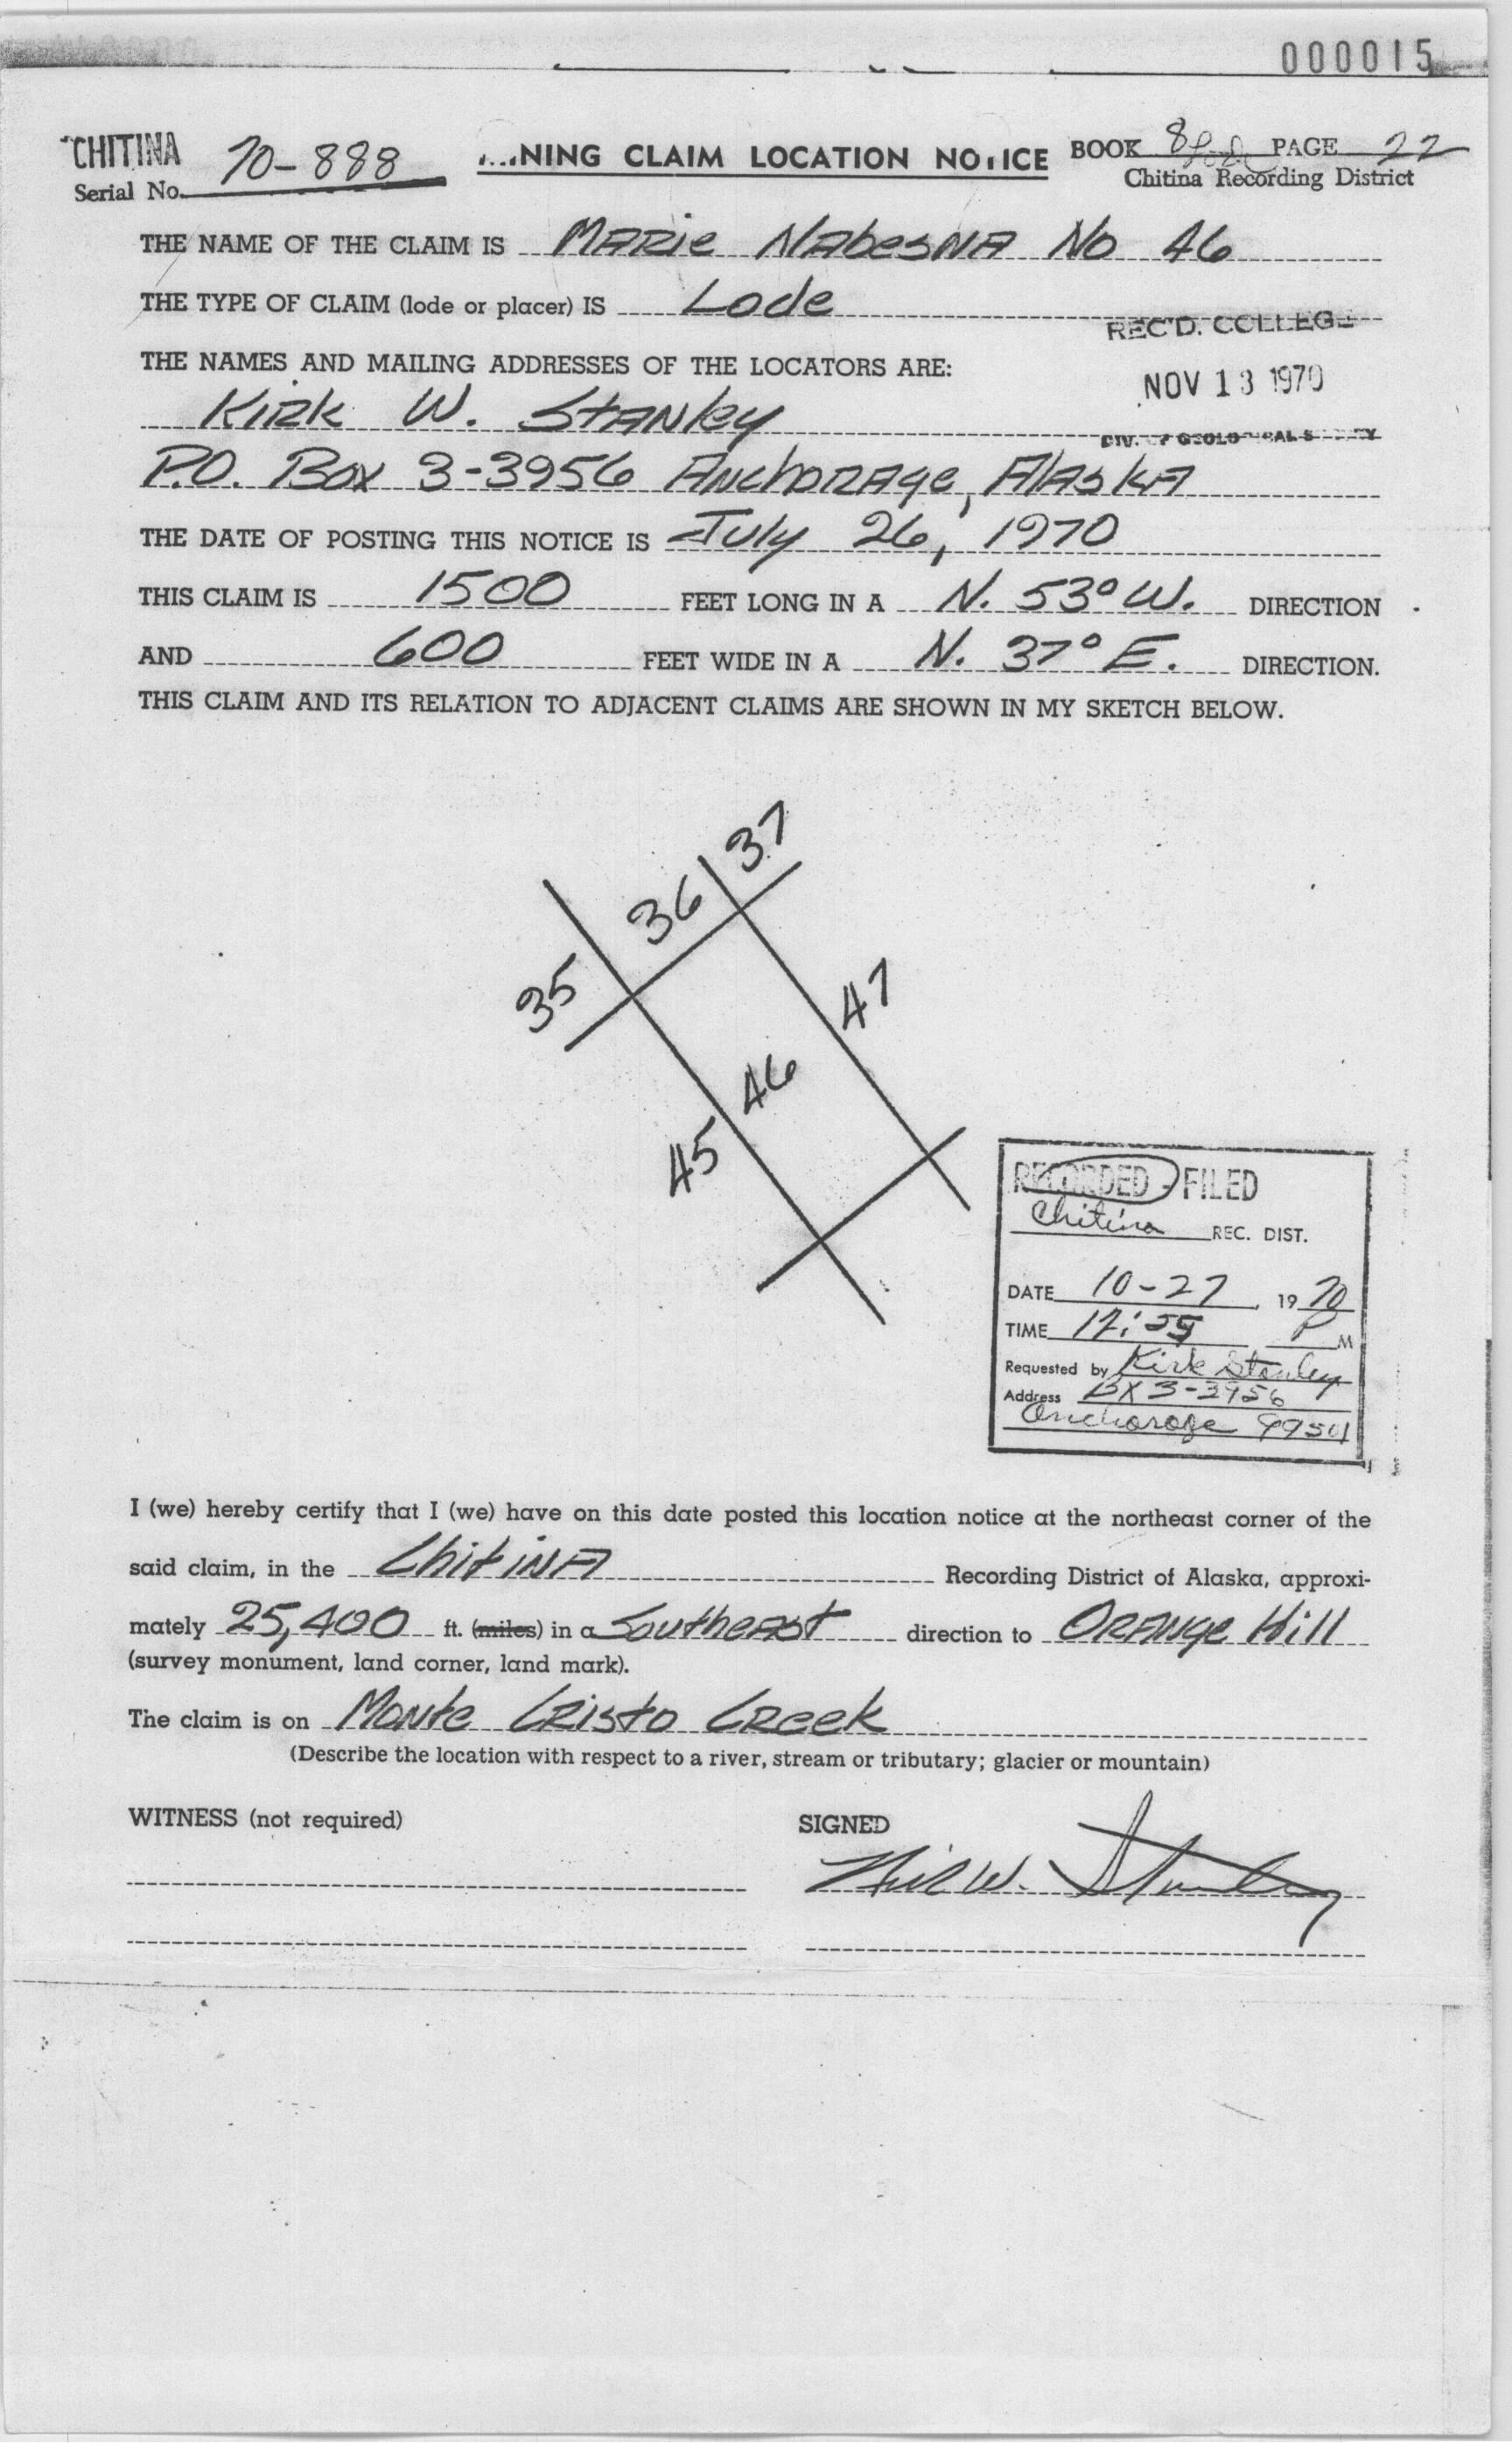 000015
CHITINA
Serial No. 70-888
NING CLAIM LOCATION NOTICE
BOOK 8 PAGE 22
Chitina Recording District
THE NAME OF THE CLAIM IS Marie Nabesna No 46
THE TYPE OF CLAIM (lode or placer) IS Lode
REC'D. COLLEGE
THE NAMES AND MAILING ADDRESSES OF THE LOCATORS ARE:
NOV 13 1970
Kirk W. Stanley
DIV. OF GEOLOGICAL SURVEY
P.O. Box 3-3956 Anchorage, Alaska
THE DATE OF POSTING THIS NOTICE IS July 26, 1970
THIS CLAIM IS 1500 FEET LONG IN A N. 53° W. DIRECTION
AND 600 FEET WIDE IN A N. 37° E. DIRECTION.
THIS CLAIM AND ITS RELATION TO ADJACENT CLAIMS ARE SHOWN IN MY SKETCH BELOW.
37
36
35
47
46
45
RECORDED - FILED
Chitina REC. DIST.
DATE 10-27, 1970
TIME 12:55 P M
Requested by Kirk Stanley
Address BX 3-3956
Anchorage 99501
I (we) hereby certify that I (we) have on this date posted this location notice at the northeast corner of the
said claim, in the Chitina Recording District of Alaska, approxi-
mately 25,400 ft. (miles) in a Southeast direction to Orange Hill
(survey monument, land corner, land mark).
The claim is on Monte Cristo Creek
(Describe the location with respect to a river, stream or tributary; glacier or mountain)
WITNESS (not required)
SIGNED
Kirk W. Stanley